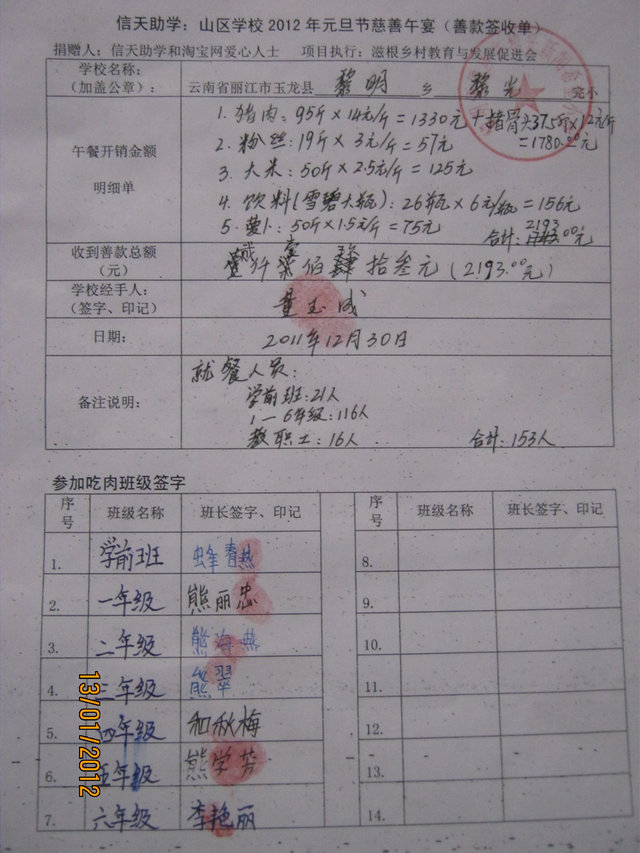 信天助学：山区学校2012年元旦节慈善午宴（善款签收单）
捐赠人：信天助学和淘宝网爱心人士 项目执行：滋根乡村教育与发展促进会
学校名称：
（加盖公章）： 云南省丽江市玉龙县 黎明 乡 黎光 完小
午餐开销金额
明细单
1. 猪肉：95斤×14元/斤=1330元+猪骨头37.5斤×12元/斤
=1780.00元
2. 粉丝：19斤×3元/斤=57元
3. 大米：50斤×2.5元/斤=125元
4. 饮料(雪碧大瓶)：26瓶×6元/瓶=156元
5. 萝卜：50斤×1.5元/斤=75元
合计：2193.00元
收到善款总额
（元）
仟 佰 拾叁元(2193.00元)
学校经手人：
（签字、印记）
玉成
日期：
2011年12月30日
备注说明：
就餐人员：
学前班：21人
1—6年级：116人
教职工：16人 合计：153人
参加吃肉班级签字
序号 班级名称 班长签字、印记 序号 班级名称 班长签字、印记
1. 学前班 蜂春燕 8.
2. 一年级 熊丽忠 9.
3. 二年级 熊海燕 10.
4. 三年级 熊翠 11.
5. 四年级 和秋梅 12.
6. 五年级 熊学芳 13.
7. 六年级 李艳丽 14.
13/01/2012